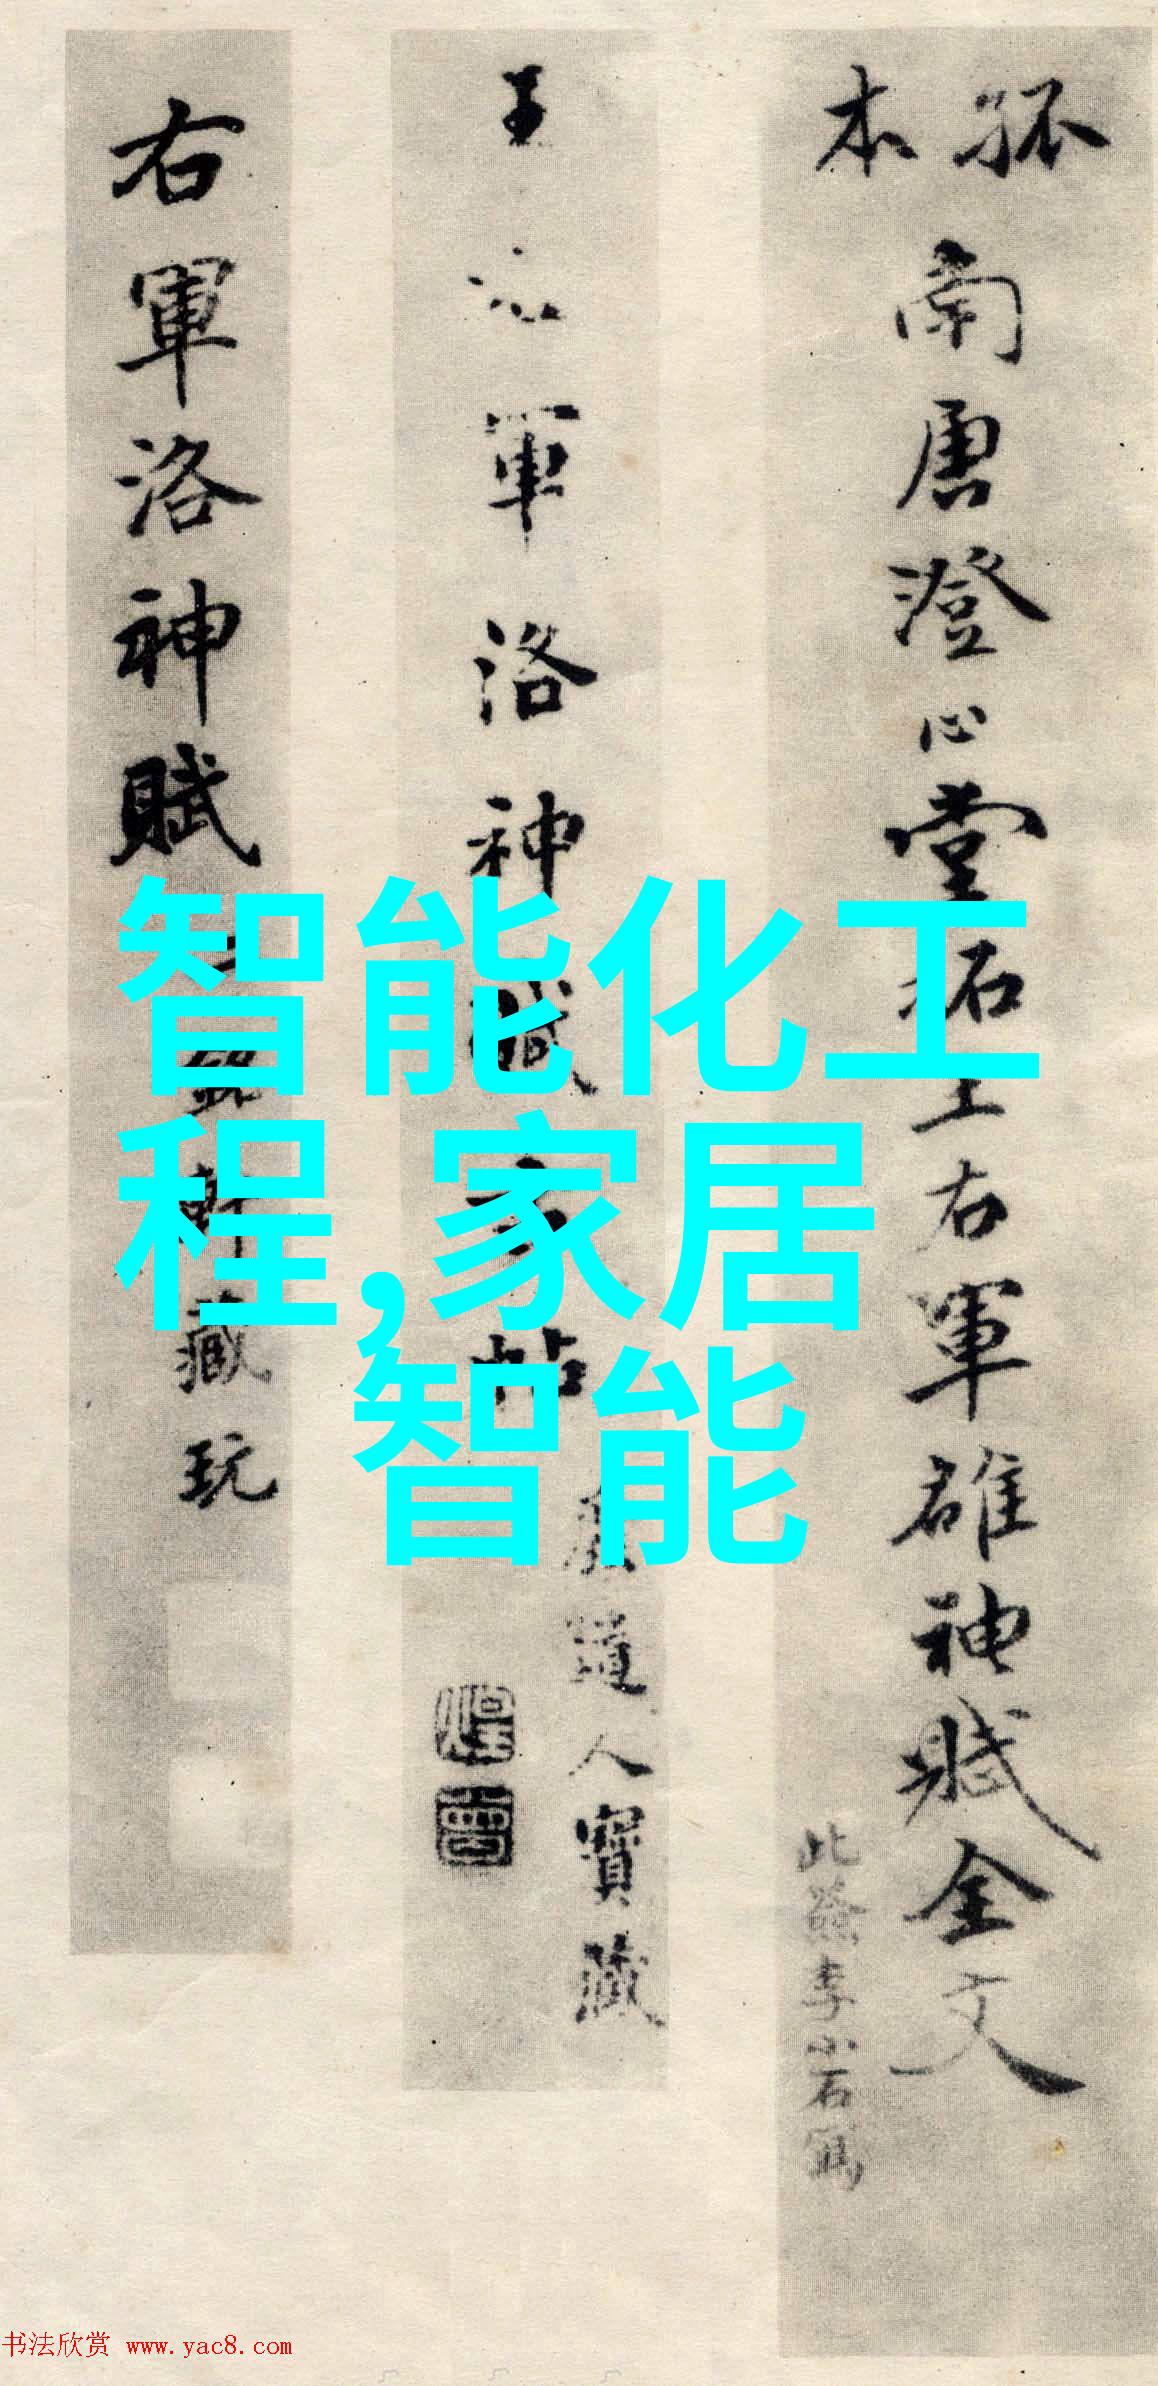 孤本
南唐澄心堂拓王右軍雒神賦全文
此籖李小石寫
王右軍洛神賦
帖
道人寶藏
右軍洛神賦
軒藏玩
智能化工
程,家居
智能
书法欣赏 www.yac8.com